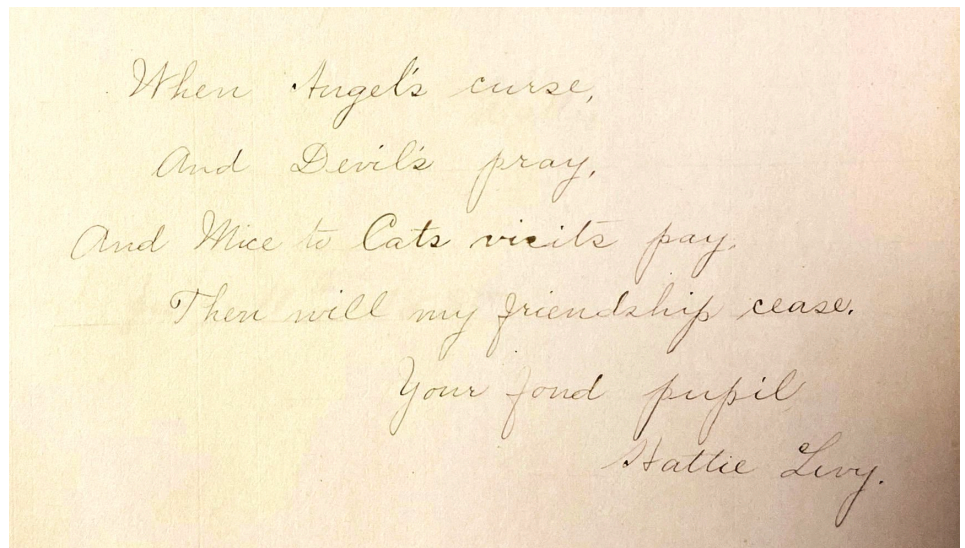 When Angel's curse,
And Devil's pray,
And Mice to Cats visits pay.
Then will my friendship cease.
Your fond pupil
Hattie Levy.